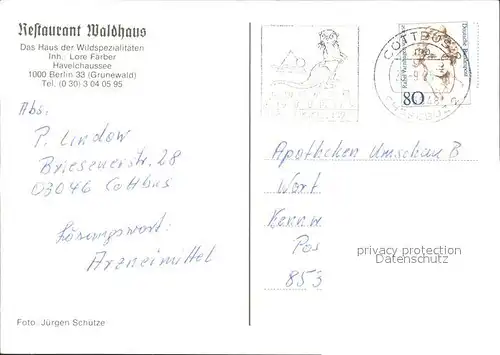 Restaurant Waldhaus
Das Haus der Wildspezialitäten
Inh.: Lore Färber
Havelchaussee
1000 Berlin 33 (Grunewald)
Tel. (0 30) 3 04 05 95
Abs:
P. Lindow
Briesener Str. 28
03046 Cottbus
Lösungswort:
Arzneimittel
Foto: Jürgen Schütze
COTTBUS
Deutsche Bundespost
80
Apotheken Umschau B
Wort
Kennw
Pos
853
privacy protection
Datenschutz